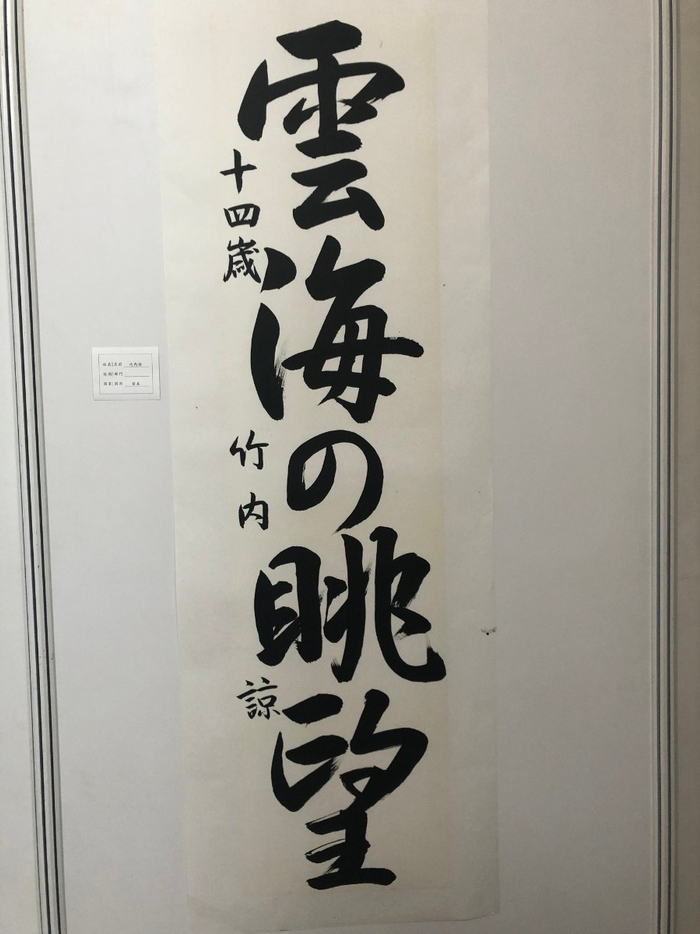 雲海の眺望
十四歳 竹内 諒